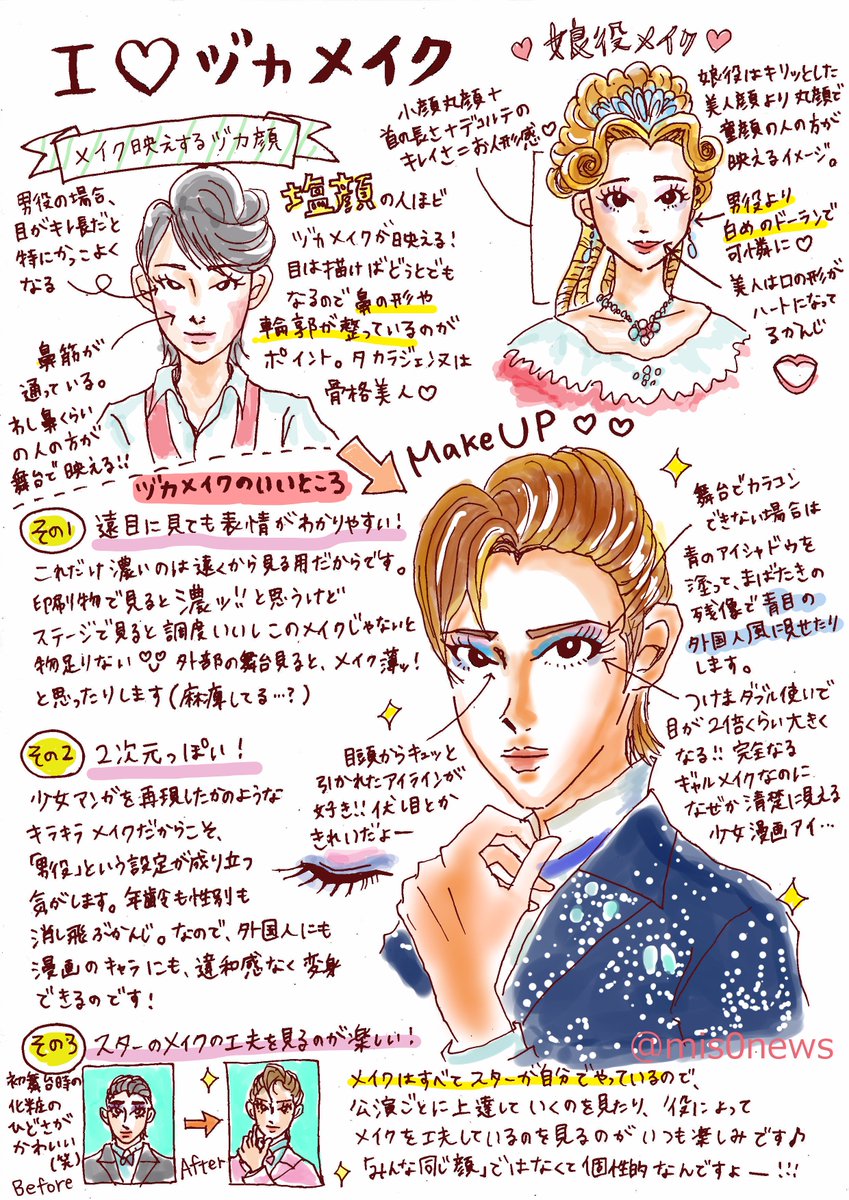 I♡ヅカメイク
メイク映えするヅカ顔
男役の場合、
目がキレ長だと
特にかっこよく
なる
鼻筋が
通っている。
わし鼻くらい
の人の方が
舞台で映える!!
塩顔の人ほど
ヅカメイクが映える!
目は描けばどうとでも
なるので鼻の形や
輪郭が整っているのが
ポイント。タカラジェンヌは
骨格美人♡
♡娘役メイク♡
小顔丸顔+
首の長さ+デコルテの
キレイさ=お人形感♡
娘役はキリッとした
美人顔より丸顔で
童顔の人の方が
映えるイメージ。
男役より
白めのドーランで
可憐に♡
美人は口の形が
ハートになって
るかんじ
MakeUP♡♡
ヅカメイクのいいところ
その1 遠目に見ても表情がわかりやすい!
これだけ濃いのは遠くから見る用だからです。
印刷物で見ると濃ッ!!と思うけど
ステージで見ると調度いいしこのメイクじゃないと
物足りない 外部の舞台見ると、メイク薄ッ!
と思ったりします(麻痺してる…?)
舞台でカラコン
できない場合は
青のアイシャドウを
塗って、まばたきの
残像で青目の
外国人風に見せたり
します。
つけまダブル使いで
目が2倍くらい大きく
なる!! 完全なる
ギャルメイクなのに
なぜか清楚に見える
少女漫画アイ…
目頭からキュッと
引かれたアイラインが
好き!!伏し目とか
きれいだよー
その2 2次元っぽい!
少女マンガを再現したかのような
キラキラメイクだからこそ、
「男役」という設定が成り立つ
気がします。年齢も性別も
消し飛ぶかんじ。なので、外国人にも
漫画のキャラにも、違和感なく変身
できるのです!
その3 スターのメイクの工夫を見るのが楽しい!
初舞台時の
化粧の
ひどさが
かわいい
(笑)
Before
After
メイクはすべてスターが自分でやっているので、
公演ごとに上達していくのを見たり、役によって
メイクを工夫しているのを見るのがいつも楽しみです♪
「みんな同じ顔」ではなくて個性的なんですよー!!!
@mis0news